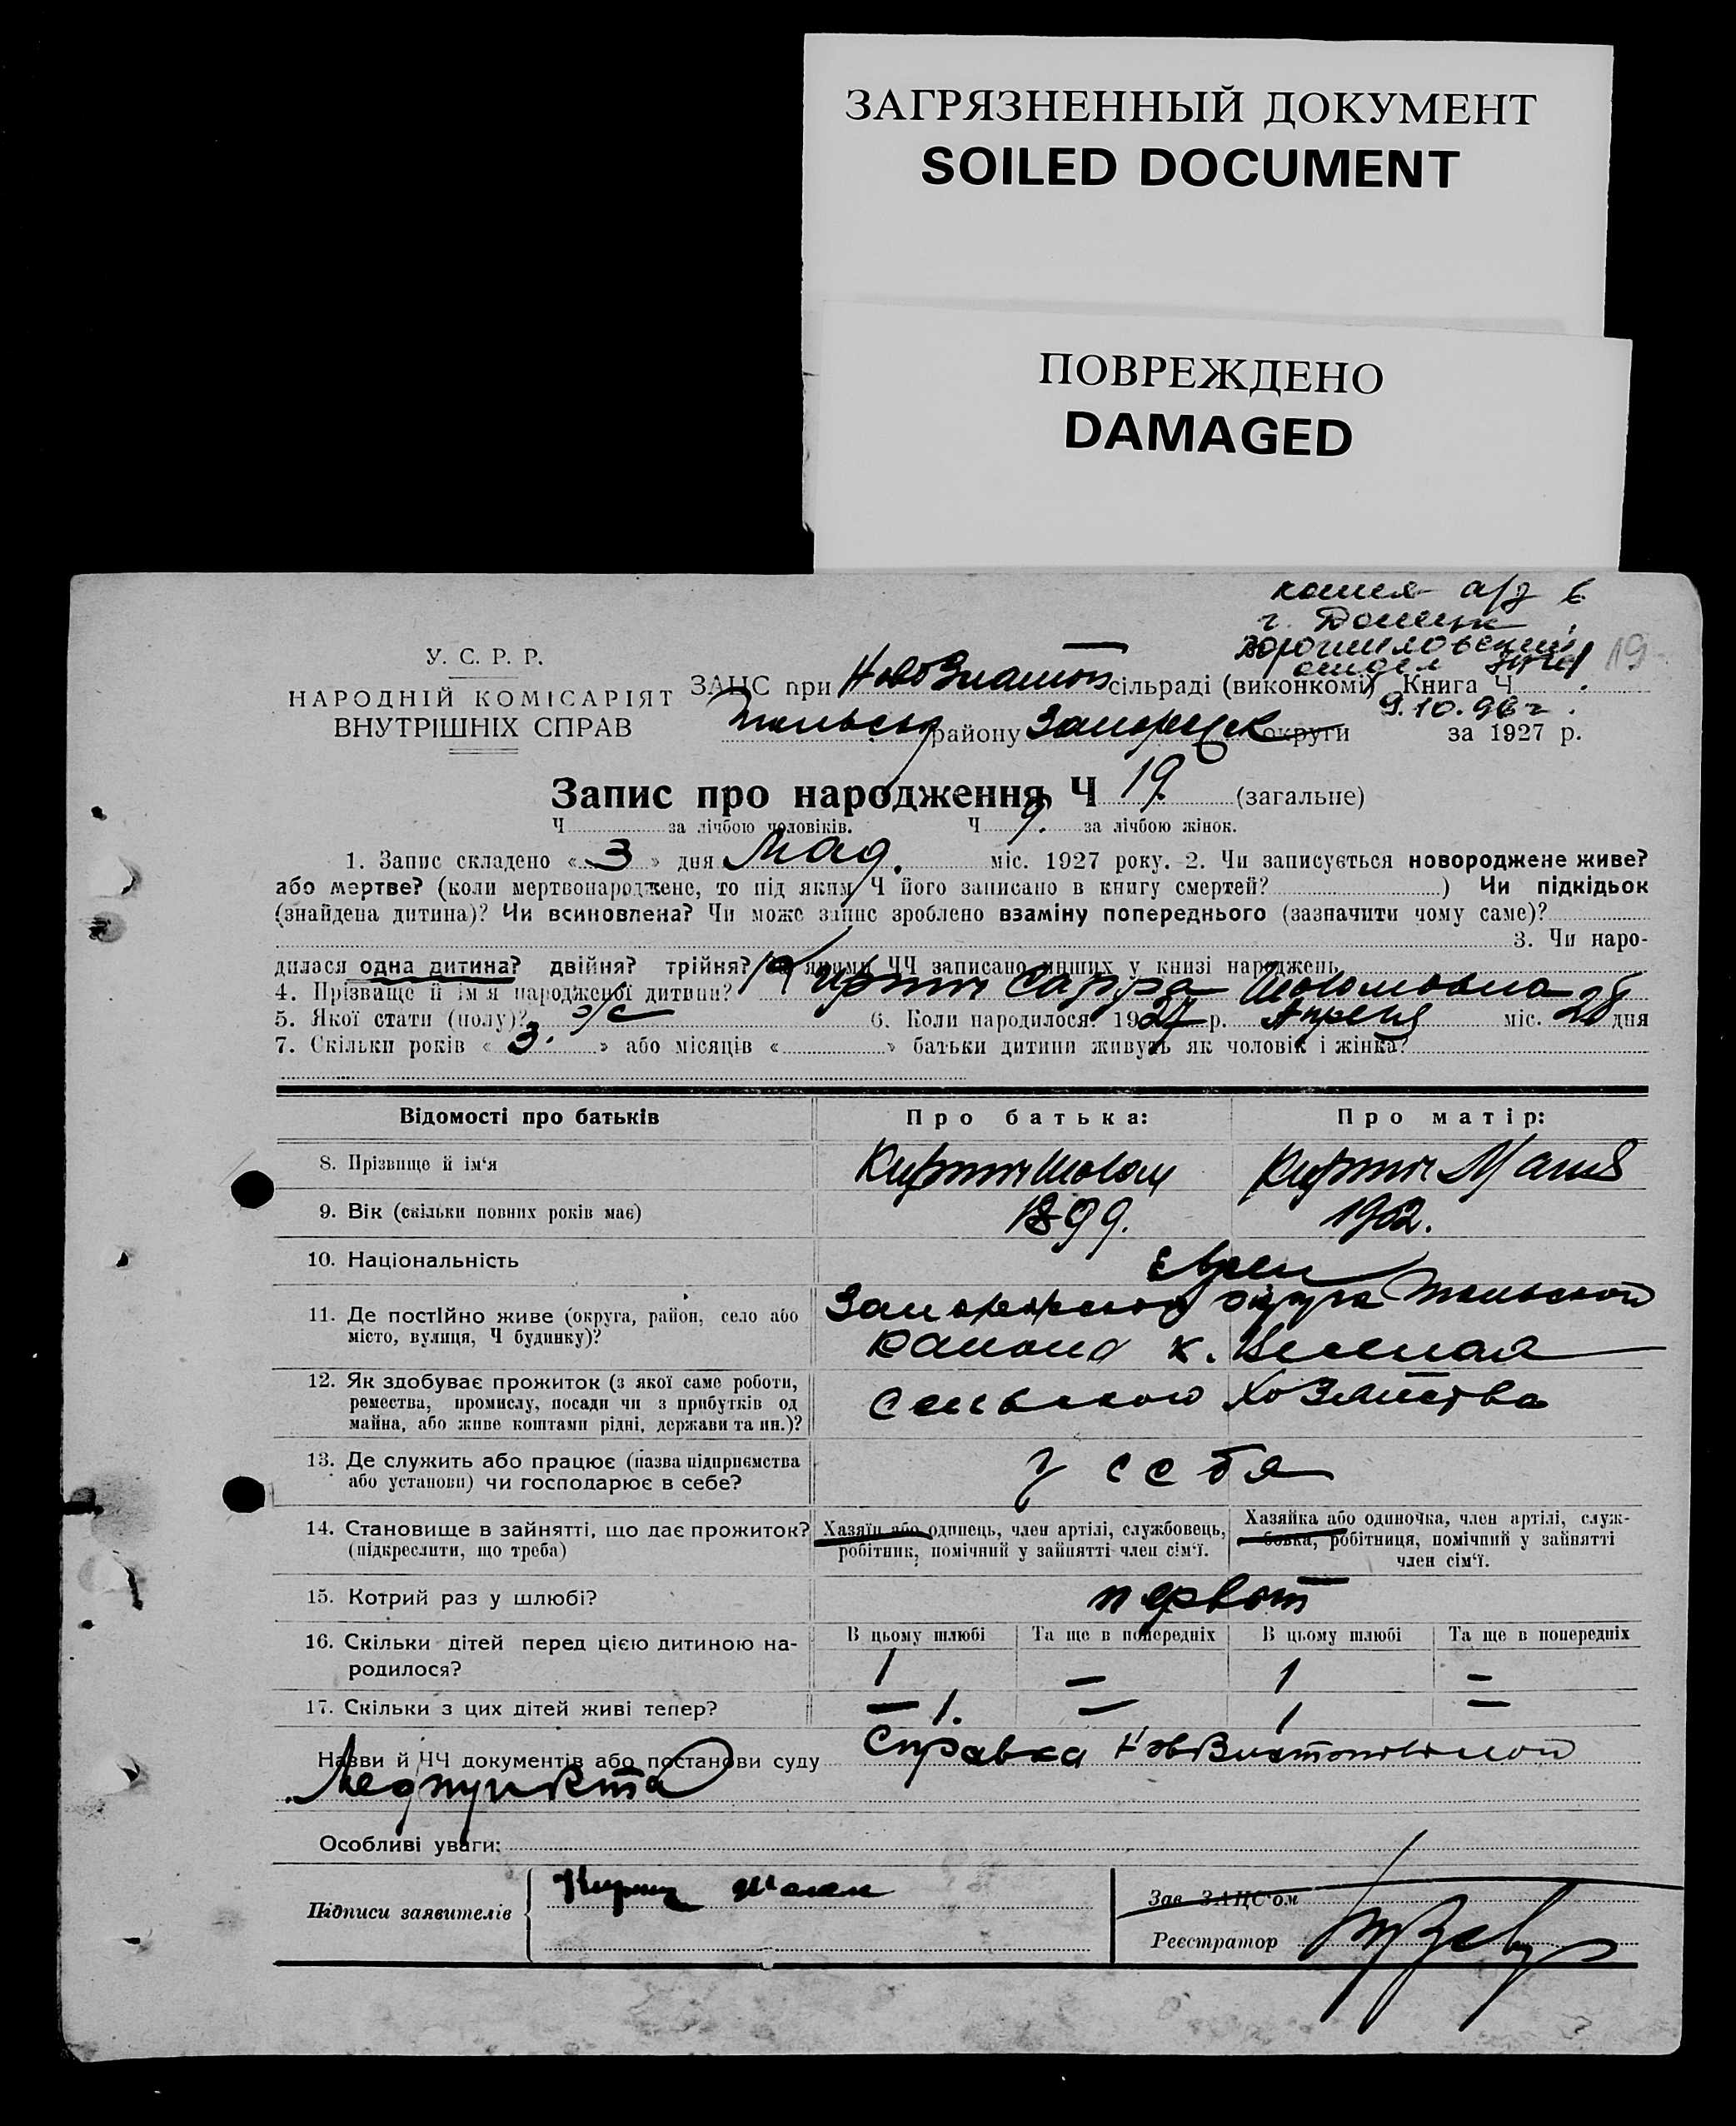 ЗАГРЯЗНЕННЫЙ ДОКУМЕНТ
SOILED DOCUMENT
ПОВРЕЖДЕНО
DAMAGED
копия а/з в
г. Донецк
Ворошиловский
отдел
9.10.96 г.
19
У. С. Р. Р.
НАРОДНІЙ КОМІСАРІЯТ
ВНУТРІШНІХ СПРАВ
ЗАЦС при сільраді (виконкомі) Книга Ч
району округи за 1927 р.
Запис про народження Ч 19. (загальне)
Ч за лічбою чоловіків. Ч 9. за лічбою жінок.
1. Запис складено « 3 » дня Мая. міс. 1927 року. 2. Чи записується новороджене живе?
або мертве? (коли мертвонароджене, то під яким Ч його записано в книгу смертей? ) Чи підкідьок
(знайдена дитина)? Чи всиновлена? Чи може запис зроблено взаміну попереднього (зазначити чому саме)?
3. Чи наро-
дилася одна дитина? двійня? трійня? За якими ЧЧ записано инших у книзі народжень
4. Прізвище й ім'я народженої дитини? Сарра Шоломовна
5. Якої стати (полу)? ж 6. Коли народилося? 1927 р. Апреля міс. 28 дня
7. Скільки років « 3. » або місяців « » батьки дитини живуть як чоловік і жінка?
Відомості про батьків Про батька: Про матір:
8. Прізвище й ім'я Шолом Мания
9. Вік (скільки повних років має) 1899. 1902.
10. Національність Евреи
11. Де постійно живе (округа, район, село або
місто, вулиця, Ч будинку)?
Запорожского округа
района к.
12. Як здобуває прожиток (з якої саме роботи,
ремества, промислу, посади чи з прибутків од
майна, або живе коштами рідні, держави та ин.)?
Сельского Хозяйства
13. Де служить або працює (назва підприємства
або установи) чи господарює в себе?
у себя
14. Становище в зайнятті, що дає прожиток?
(підкреслити, що треба)
Хазяїн або одинець, член артілі, службовець,
робітник, помічний у зайнятті член сім'ї.
Хазяйка або одиночка, член артілі, служ-
бовка, робітниця, помічний у зайнятті
член сім'ї.
15. Котрий раз у шлюбі? первой
16. Скільки дітей перед цією дитиною на-
родилося?
В цьому шлюбі Та ще в попередніх В цьому шлюбі Та ще в попередніх
1 — 1 —
17. Скільки з цих дітей живі тепер? — 1. — 1 —
Назви й ЧЧ документів або постанови суду Справка
Медпункта
Особливі уваги:
Підписи заявителів
Зав. ЗАЦС'ом
Реєстратор